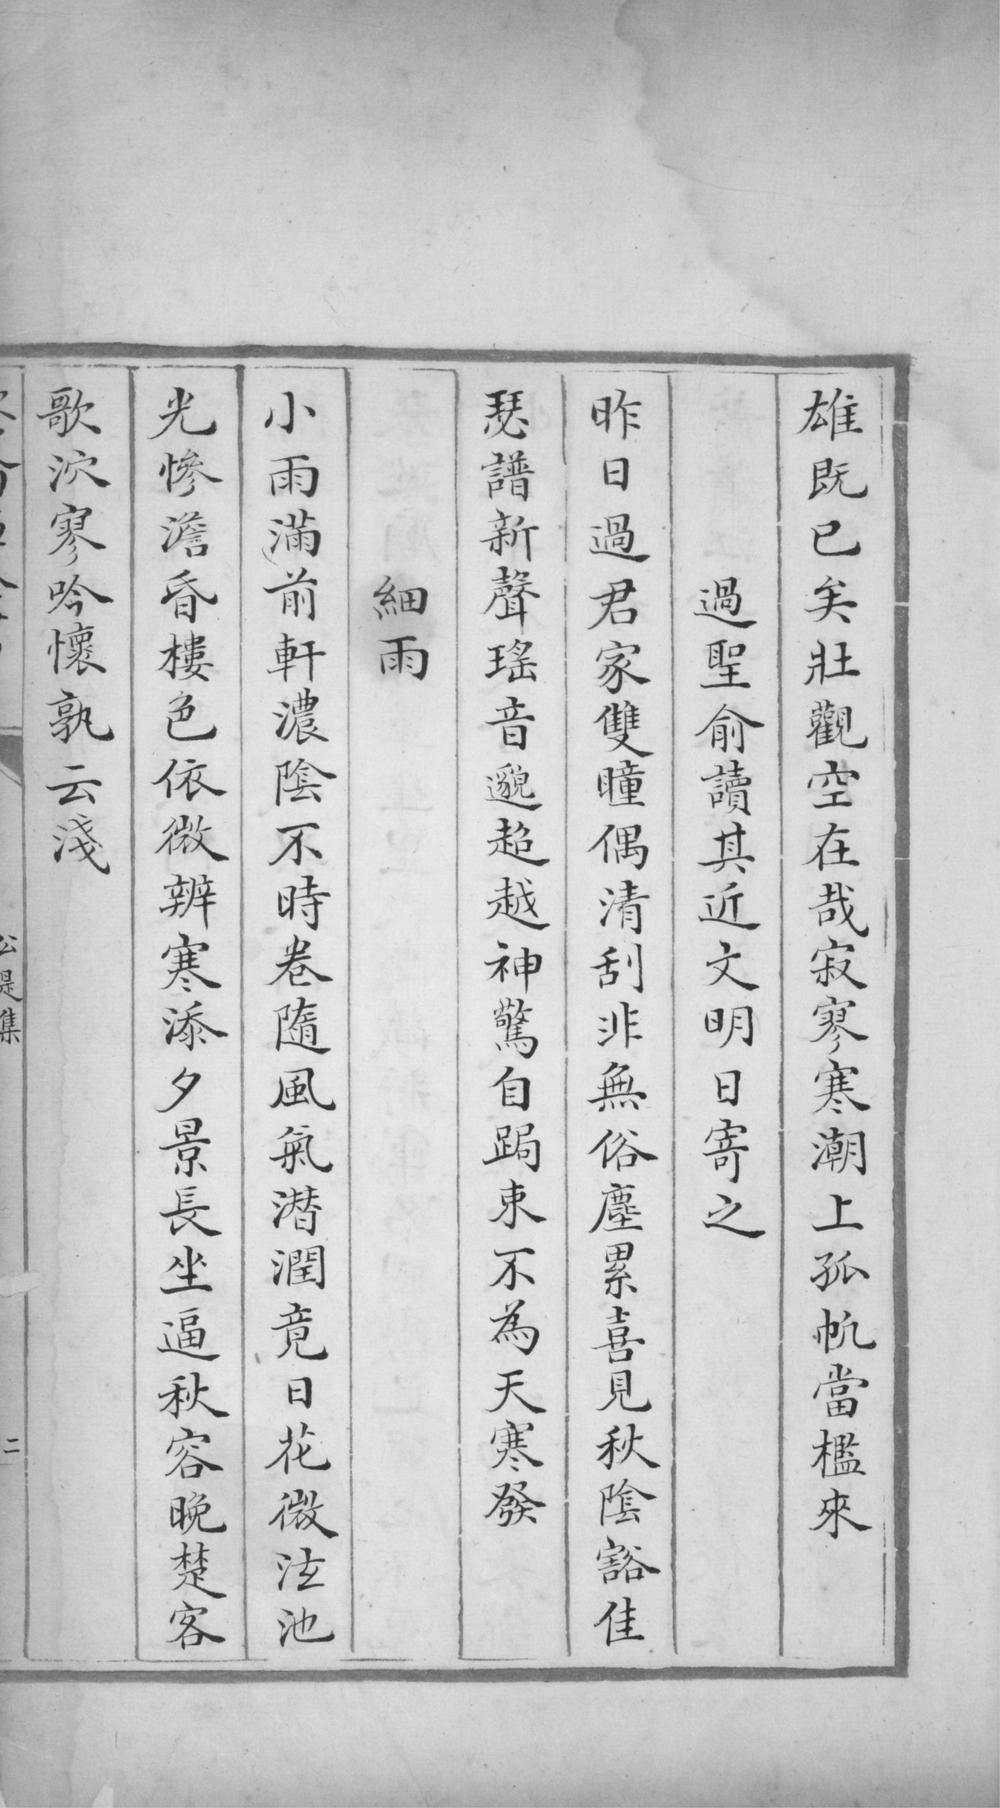 雄既已矣壯觀空在哉寂寥寒潮上孤帆當檻來
過聖俞讀其近文明日寄之
昨日過君家雙瞳偶清刮非無俗塵累喜見秋陰豁佳
瑟譜新聲瑤音邈超越神驚自跼束不為天寒發
細雨
小雨滿前軒濃陰不時卷隨風氣潛潤竟日花微泫池
光慘澹昏樓色依微辨寒添夕景長坐逼秋容晚楚客
歌泬寥吟懷孰云淺
公是集
二